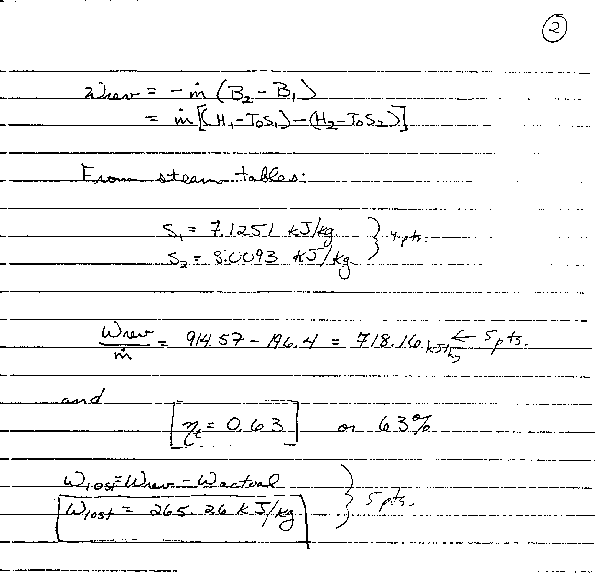 2
Wrev = -ṁ (B₂ - B₁)
= ṁ[(H₁-T₀S₁)-(H₂-T₀S₂)]
From steam tables:
S₁ = 7.1251 kJ/kg } 4 pts.
S₂ = 8.0093 kJ/kg
Wrev/ṁ = 914.57 - 196.4 = 718.16 kJ/kg ← 5 pts.
and
ηt = 0.63 or 63%
Wlost = Wrev - Wactual } 5 pts.
Wlost = 265.26 kJ/kg